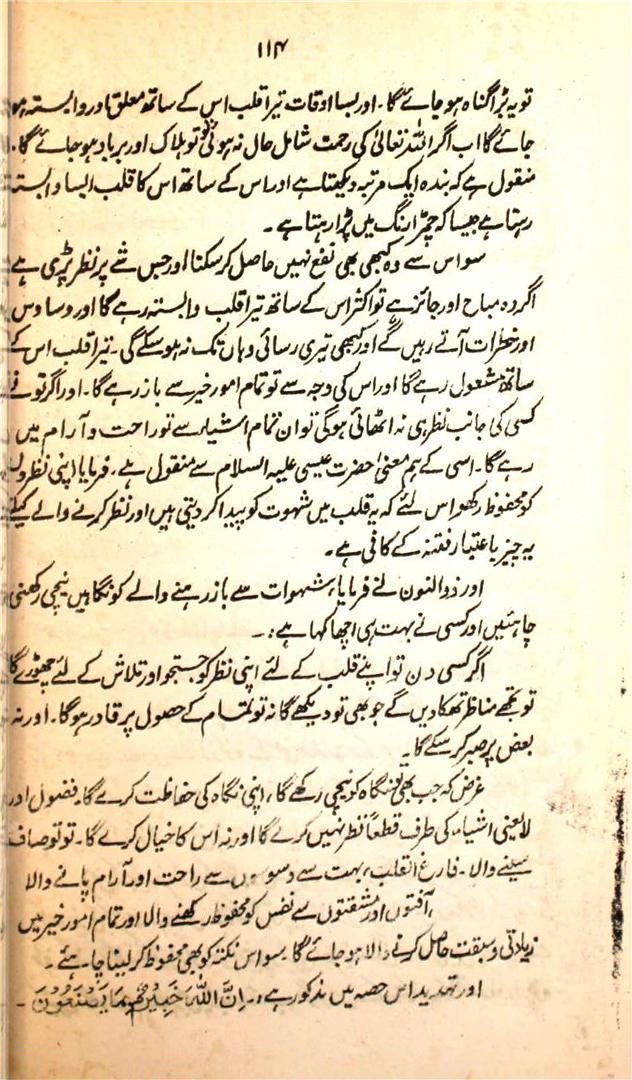 ۱۱۴
تو یہ بڑا گناہ ہو جائے گا۔ اور بسا اوقات تیرا قلب اس کے ساتھ معلق اور وابستہ ہو
جائے گا اب اگر اللہ تعالیٰ کی رحمت شامل حال نہ ہوئی تو تو ہلاک اور برباد ہو جائے گا۔
منقول ہے کہ بندہ ایک مرتبہ دیکھتا ہے اور اس کے ساتھ اس کا قلب ایسا وابستہ
رہتا ہے جیسا کہ چمڑا رنگ میں پڑا رہتا ہے۔
سو اس سے وہ کبھی بھی نفع نہیں حاصل کر سکتا اور جس شے پر نظر پڑی ہے
اگر وہ مباح اور جائز ہے تو اکثر اس کے ساتھ تیرا قلب وابستہ رہے گا اور وساوس
اور خطرات آتے رہیں گے اور کبھی تیری رسائی وہاں تک نہ ہو سکے گی۔ تیرا قلب اس کے
ساتھ مشعول رہے گا اور اس کی وجہ سے تو تمام امور خیر سے باز رہے گا۔ اور اگر تو نے
کسی کی جانب نظر ہی نہ اٹھائی ہوگی تو ان تمام اشیاء سے تو راحت و آرام میں
رہے گا۔ اسی کے ہم معنی حضرت عیسی علیہ السلام سے منقول ہے۔ فرمایا اپنی نظروں
کو محفوظ رکھو اس لئے کہ یہ قلب میں شہوت کو پیدا کر دیتی ہیں اور نظر کرنے والے کیلئے
یہ چیز باعتبار فتنہ کے کافی ہے۔
اور ذوالنون نے فرمایا، شہوات سے باز رہنے والے کو نگاہیں نیچی رکھنی
چاہئیں اور کسی نے بہت ہی اچھا کہا ہے:۔
اگر کسی دن تو اپنے قلب کے لئے اپنی نظر کو جستجو اور تلاش کے لئے چھوڑے گا
تو تجھے مناظر تھکا دیں گے جو بھی تو دیکھے گا نہ تو تمام کے حصول پر قادر ہوگا۔ اور نہ
بعض پر صبر کر سکے گا۔
غرض کہ جب بھی تو نگاہ کو نیچی رکھے گا، اپنی نگاہ کی حفاظت کرے گا۔ فضول اور
لایعنی اشیاء کی طرف قطعاً نظر نہیں کرے گا اور نہ اس کا خیال کرے گا۔ تو تو صاف
سینے والا۔ فارغ القلب، بہت سے وسوسوں سے راحت اور آرام پانے والا
آفتوں اور مشقتوں سے نفس کو محفوظ رکھنے والا اور تمام امور خیر میں
زیادتی و سبقت حاصل کرنے والا ہو جائے گا۔ سو اس نکتہ کو بھی محفوظ کر لینا چاہئے۔
اور تہدید اس حصہ میں مذکور ہے:۔ اِنَّ اللّٰهَ خَبِیْرٌۢ بِمَا یَصْنَعُوْنَ۔